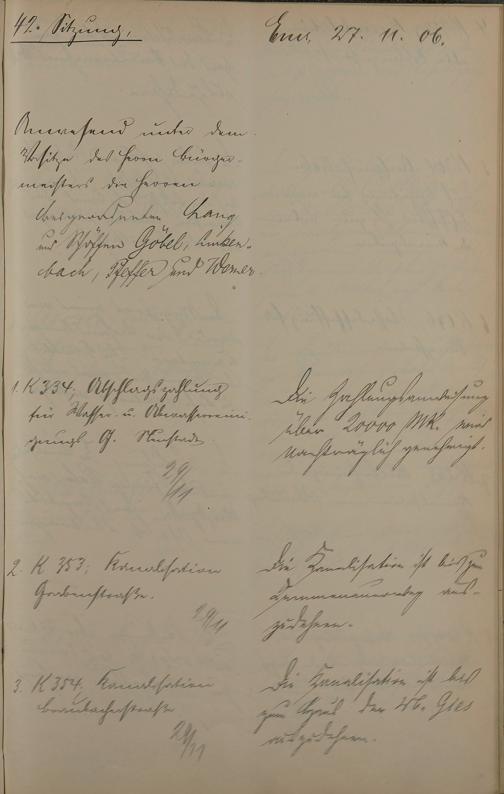 42. Sitzung.
Ems, 27. 11. 06.
Anwesend unter dem
Vorsitze des Herrn Bürger-
meisters die Herren
Beigeordneten Lang
und Schöffen Göbel, Linken-
bach, Pfeffer und Werner
1. K 334; Abschlagszahlung
für Wasser- u. Abwasserreini-
gungs- G. Neustadt.
29/11
Die Zahlungsanweisung
über 20000 MK. wird
nachträglich genehmigt.
2. K 353; Kanalisation
Grabenstraße.
29/11
Die Kanalisation ist bis zum
aus-
zudehnen.
3. K 354; Kanalisation
Braubacherstraße
29/11
Die Kanalisation ist bis
zum Haus der Wb. Gies
auszudehnen.